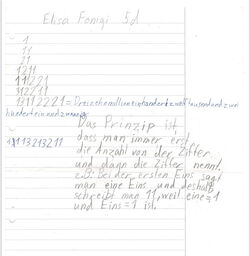 Elisa Fonigi 5d
1
11
21
1211
111221
312211
13112221 = Dreizehnmillioneinhundertzwölftausendundzwei
hunderteinundzwanzig
Das Prinzip ist,
dass man immer erst
1113213211
die Anzahl von der Ziffer
und dann die Ziffer nennt.
z.B: Bei der ersten Eins sagt
man eine Eins und deshalb
schreibt man 11, weil eine=1
und Eins=1 ist.